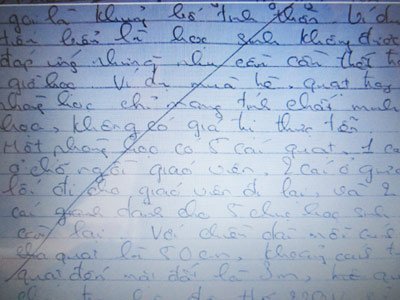 gia là khủng bố tinh thần. Ví dụ
tiên bản là học sinh không được
đáp ứng những nhu cầu cần thiết tr
giờ học. Ví dụ mùa hè, quạt trong
học chỉ mang tính chất minh
hoạ, không có giá trị thực tiễn.
Một phòng học có 5 cái quạt. 1 cái
ở chỗ ngồi giáo viên, 2 cái ở giữa
lối đi cho giáo viên đi lại, và 2
cái giành dành cho 5 chục học sinh
còn lại. Với chiều dài mỗi cánh
quạt là 50cm, khoảng cách từ
quạt đến nơi đất là 3m,